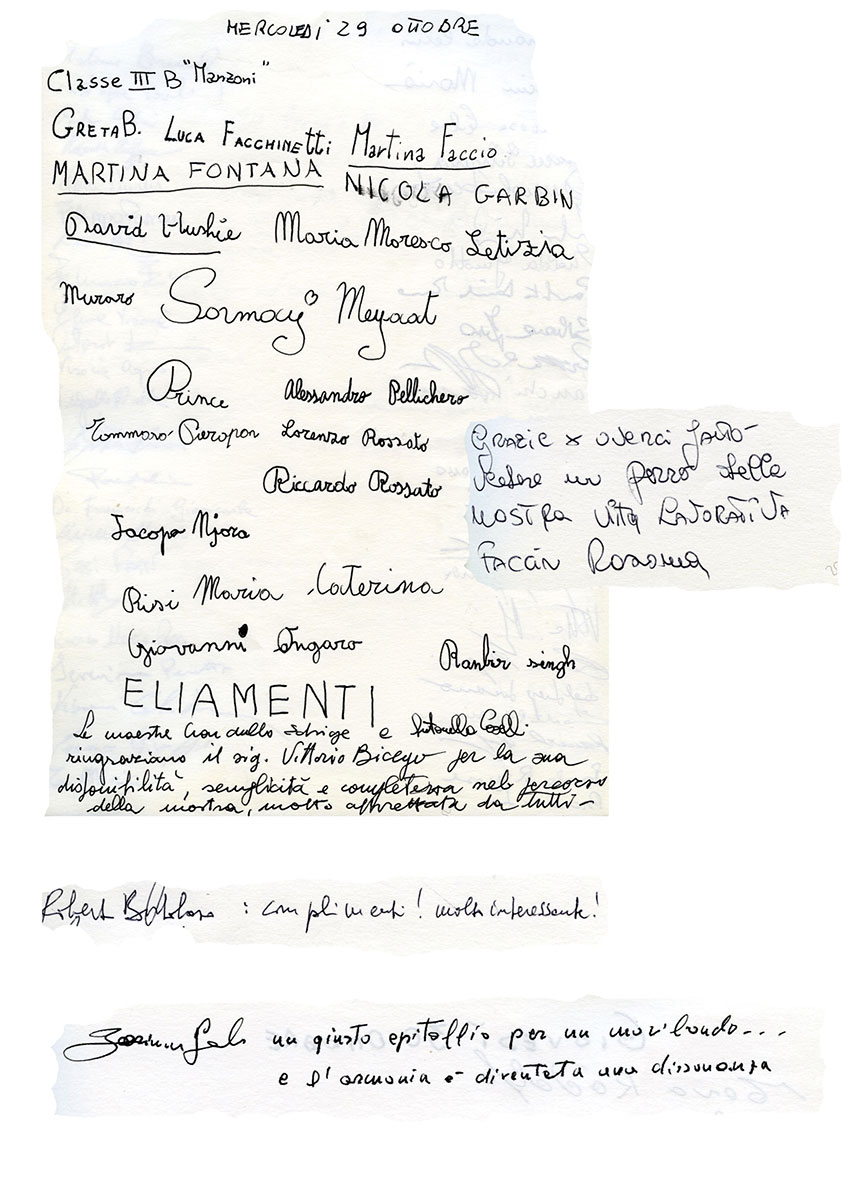 MERCOLEDì 29 OTTOBRE
Classe III B "Manzoni"
GRETA B. LUCA FACCHINETTI Martina Faccio
MARTINA FONTANA NICOLA GARBIN
David Maria Moresco Letizia
Muraro Meyaat
Prince Alessandro Pellichero
Tommaso Pieropan Lorenzo Rossato
Riccardo Rossato
Jacopo
Risi Maria Caterina
Giovanni Ongaro Ranbir singh
ELIA MENTI
Le maestre e Antonella
ringraziano il sig. Vittorio Bicego per la sua
disponibilità, semplicità e completezza nel percorso
della mostra, molto apprezzata da tutti-
GRAZIE x averci fatto
vedere un pezzo della
NOSTRA vita LAVORATIVA
FACCIN Rosanna
Robert : complimenti! molto interessante!
un giusto epitaffio per un moribondo...
e l'armonia è diventata una dissonanza